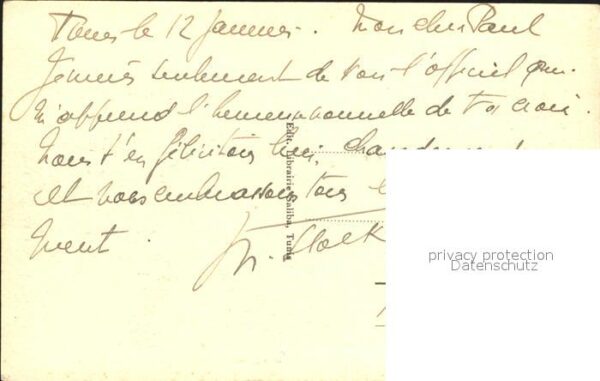 Tunis le 12 Janvier. Mon cher Paul
Je viens seulement de voir l'officiel qui
m'apprend l'heureuse nouvelle de ta croix.
Nous t'en félicitons bien
et nous embrassons tous
ment.
Edit. Librairie Saliba, Tunis
privacy protection
Datenschutz